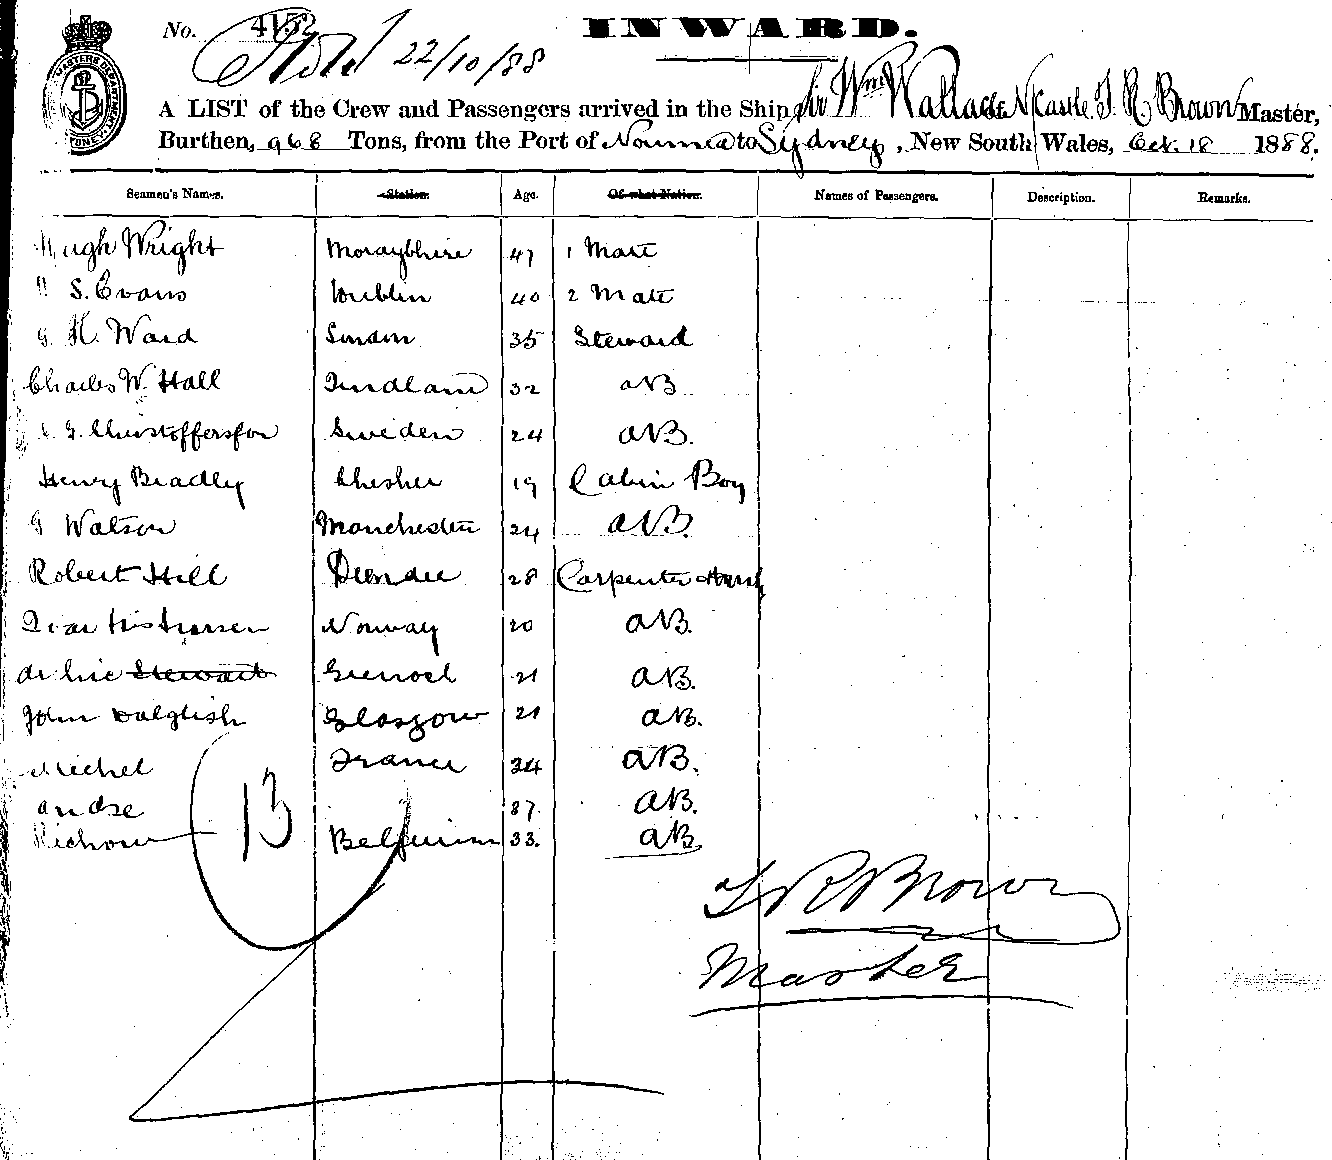 No. 4152 INWARD.
22/10/88
A LIST of the Crew and Passengers arrived in the Ship Sir Wm Wallace N'Castle J. R. Brown Master,
Burthen, 968 Tons, from the Port of Noumea to Sydney, New South Wales, Oct. 18 1888.
Seamen's Names. Station. Age. Of what Nation. Names of Passengers. Description. Remarks.
Hugh Wright Morayshire 47 1 Mate
S. Evans Dublin 40 2 Mate
G H. Ward London 35 Steward
Charles W. Hall 32 AB
G. Christofferson Sweden 24 AB.
Henry Bradley Chesher 19 Cabin Boy
G Watson Manchester 24 AB.
Robert Hill Dundee 28 Carpenter
Norway 20 AB.
Archie Stewart Greenock 21 AB.
John Dalglish Glasgow 21 AB.
Michel France 34 AB.
Andre 37 AB.
13
Belgium 33. AB
J R Brown
Master